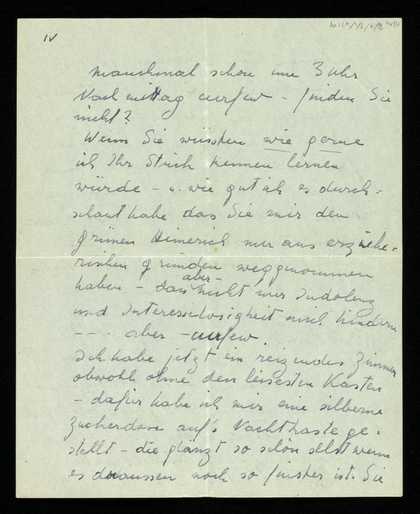 IV
manchmal schon um 3 Uhr
Nachmittag curfew - finden Sie
nicht?
Wenn Sie wüssten wie gerne
ich Ihr Stück kennen lernen
würde - u. wie gut ich es durch-
schaut habe das Sie mir den
grünen Heinrich nur aus erziehe-
rischen gründen weggenommen
haben - dass aber nicht nur Indolenz
und Interesselosigkeit mich hindern
- - - aber - curfew.
Ich habe jetzt ein reizendes Zimmer
obwohl ohne den leisesten Kasten
- dafür habe ich mir eine silberne
Zuckerdose auf's Nachtkastl ge-
stellt - die glänzt so schön selbst wenn
es draussen noch so finster ist. Sie